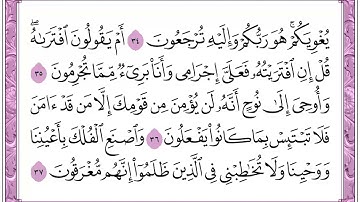 يُغْوِيَكُمْ ۚ هُوَ رَبُّكُمْ وَإِلَيْهِ تُرْجَعُونَ ٣٤ أَمْ يَقُولُونَ ٱفْتَرَىٰهُ ۖ
قُلْ إِنِ ٱفْتَرَيْتُهُۥ فَعَلَىَّ إِجْرَامِى وَأَنَا۠ بَرِىٓءٌ مِّمَّا تُجْرِمُونَ ٣٥
وَأُوحِىَ إِلَىٰ نُوحٍ أَنَّهُۥ لَن يُؤْمِنَ مِن قَوْمِكَ إِلَّا مَن قَدْ ءَامَنَ
فَلَا تَبْتَئِسْ بِمَا كَانُوا۟ يَفْعَلُونَ ٣٦ وَٱصْنَعِ ٱلْفُلْكَ بِأَعْيُنِنَا
وَوَحْيِنَا وَلَا تُخَٰطِبْنِى فِى ٱلَّذِينَ ظَلَمُوٓا۟ ۚ إِنَّهُم مُّغْرَقُونَ ٣٧